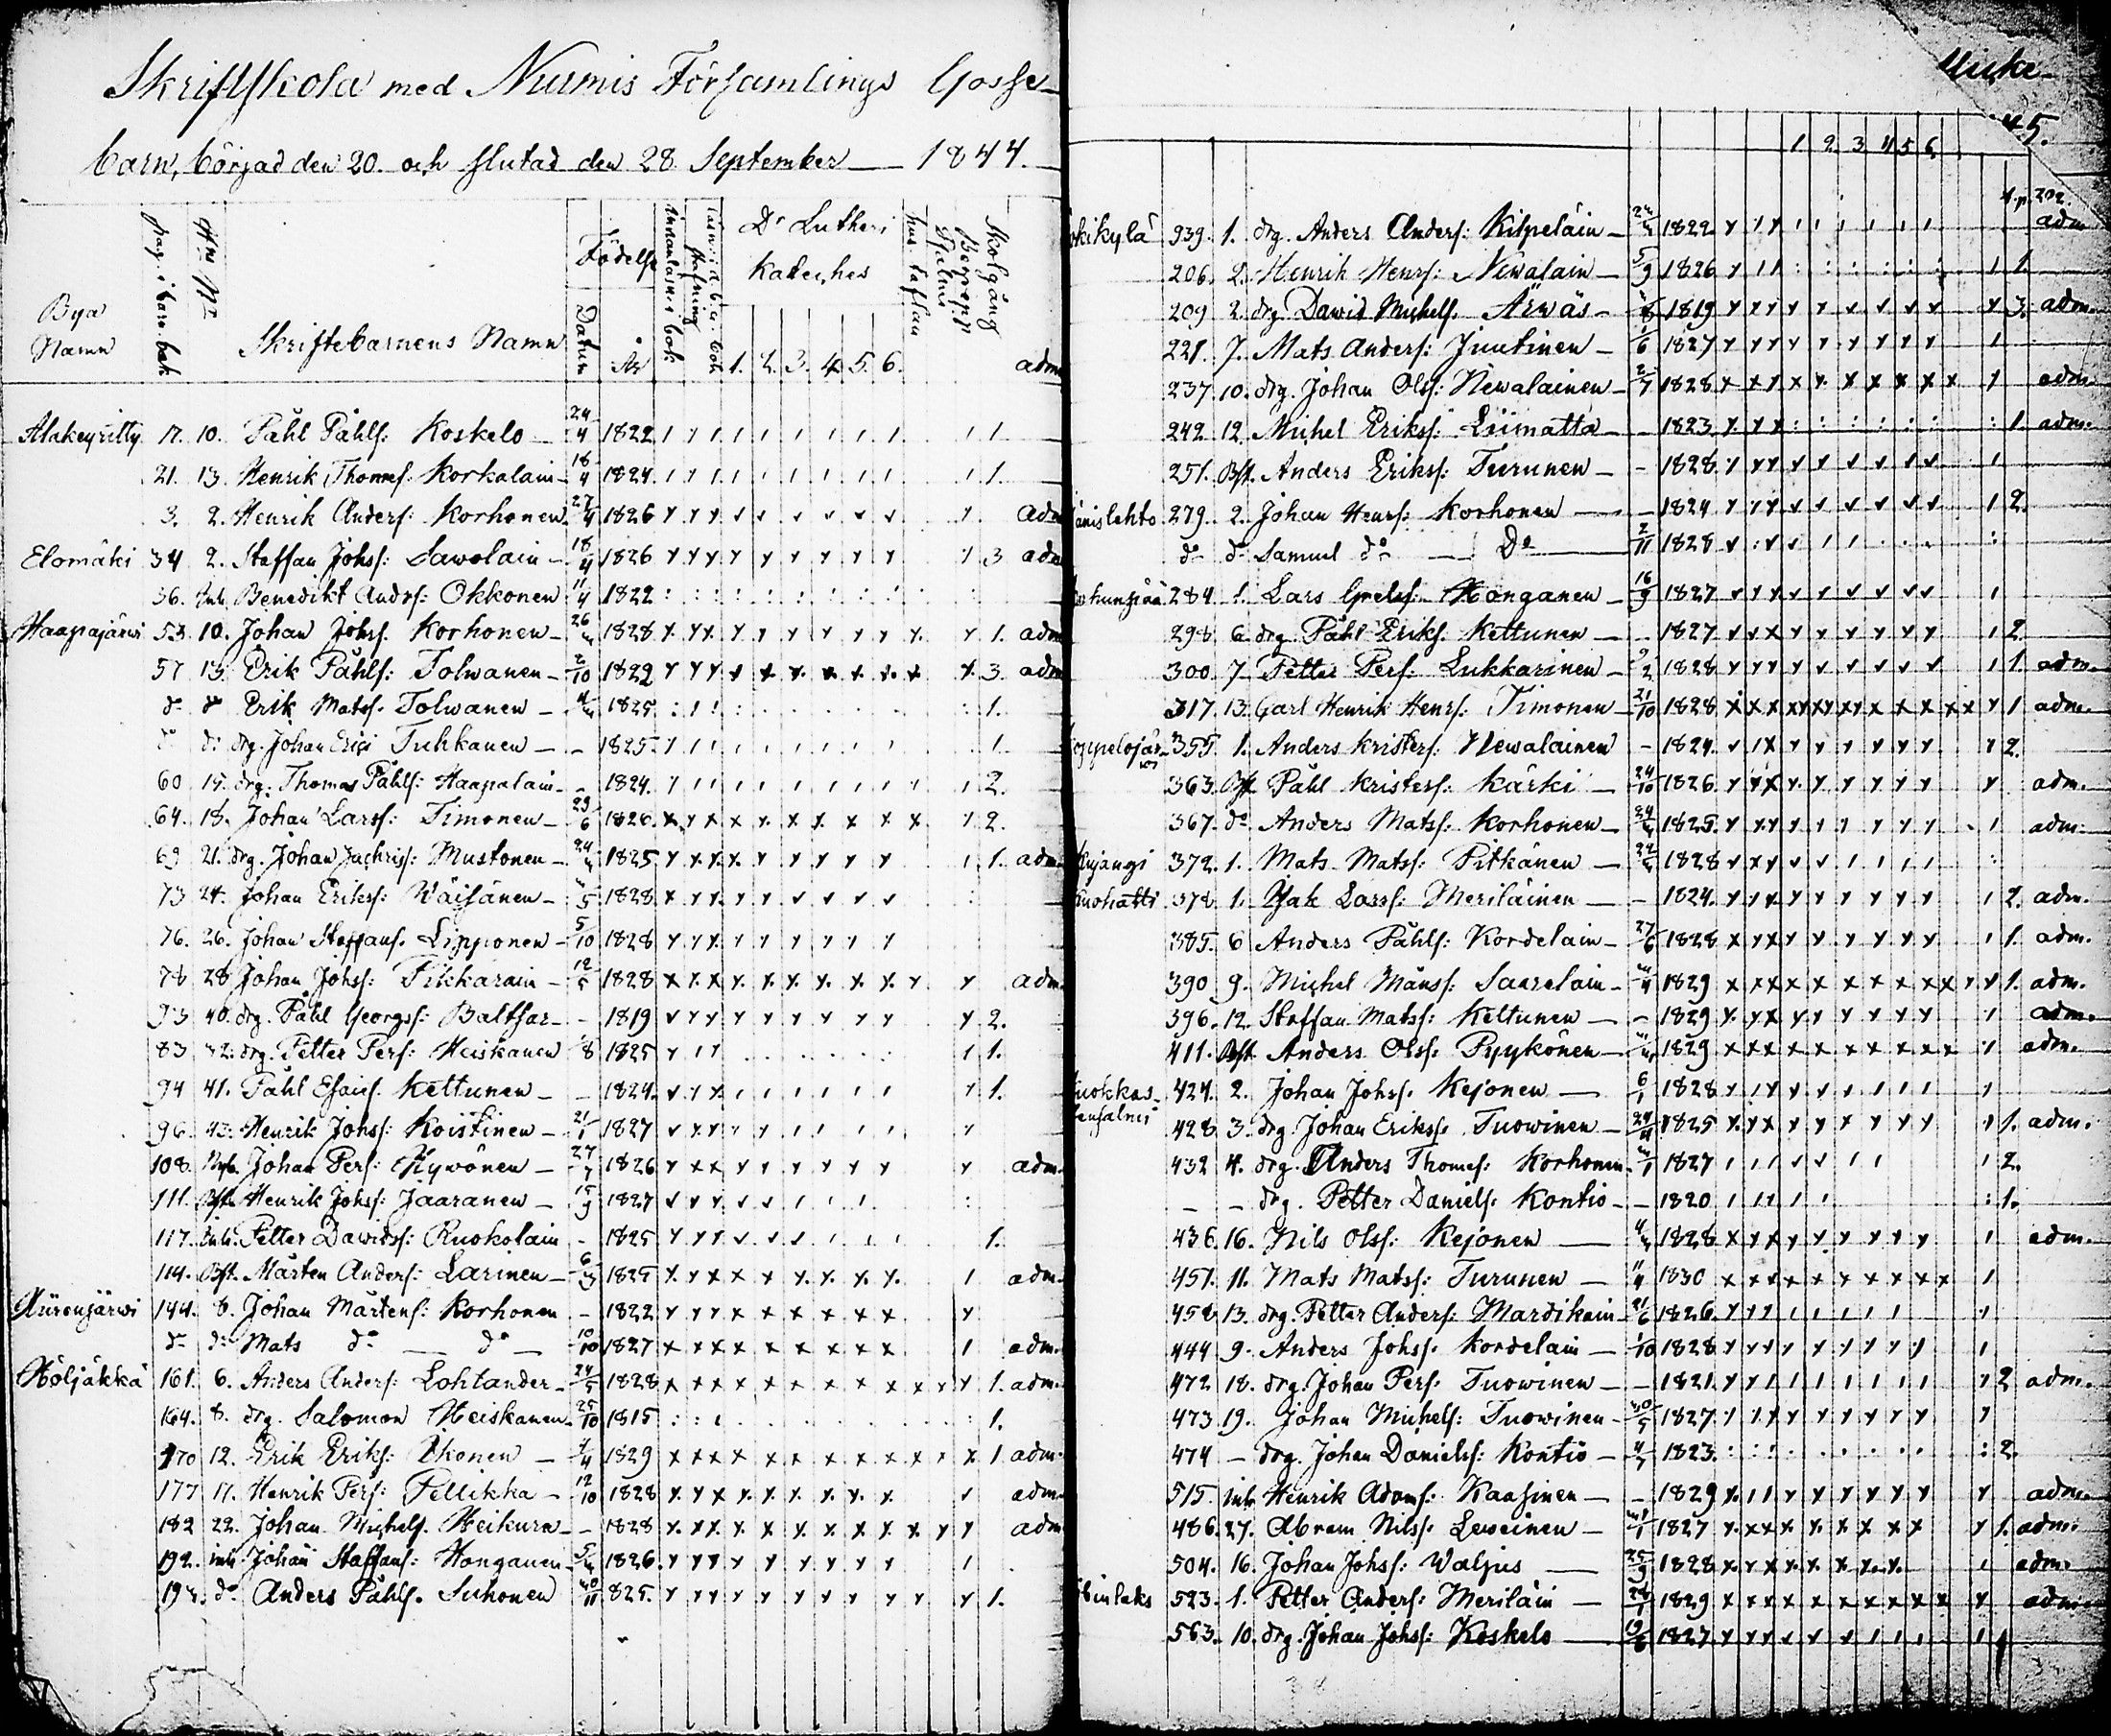 Skriftskola med Nurmis Församlings Gosse-
barn, börjad den 20. och slutad den 28. September 1844.
Bya Namn
pag. i barn. bok
Skriftebarnens Namn
Födelse
Datum
År
Dr Lutheri Kateches
1. 2. 3. 4. 5. 6.
hus taflan
Begrepp
Skolgång
adm
Alakeyritty 17. 10. Påhl Påhls: Koskelo 24/4 1822 1
21. 13. Henrik Thomes: Korkalain 18/4 1824. 1.
3. 2. Henrik Anders: Korhonen 27/4 1826 adm
Elomäki 34 2. Staffan Johss: Sawolain 18/4 1826 3 adm
36. Inh. Benedikt Andrs: Okkonen 11/4 1822
Haapajärwi 53. 10. Johan Johss. Korhonen 1828 1. adm
57 13. Erik Påhls: Tolwanen 2/10 1822 3. adm
do do Erik Matss. Tolwanen 1825. 1.
do do drg. Johan Erici Tuhkanen - 1825. 1.
60 15. drg. Thomas Påhls: Haapalain - 1824. 2.
64. 18. Johan Larss: Timonen 29/6 1826. 2.
69 21. drg. Johan Zachriss: Mustonen 1825 1. adm
73 24. Johan Erikss: Wäisänen 1828
76. 26. Johan Staffans. Lipponen 5/10 1828
78 28 Johan Johss: Pikkarain 12/5 1828 adm.
93 40. drg. Påhl Georgss: Baltsar - 1819 2.
83 32. drg. Petter Pers: Heiskanen 1825 1.
94 41. Påhl Esaies. Kettunen - 1824. 1.
96. 43. Henrik Johss: Koistinen 21/1 1827
108. Johan Pers: Hywönen 27/7 1826 adm.
111. Bft. Henrik Johss: Jaaranen 15/9 1827
117. Inh. Petter Davidss: Ruokolain - 1825 1.
114. Bft. Mårten Anders: Larinen 1825 adm.
144. 8. Johan Mårtens: Korhonen - 1822
do do Mats do do 10/10 1827 adm.
Höljäkkä 161. 6. Anders Anders: Lohtander 24/5 1828 1. adm.
164. 8. drg. Salomon Heiskanen 25/10 1815 1.
170 12. Erik Eriks: Ikonen 1829 1 adm.
177 17. Henrik Pers: Pellikka 12/10 1828 adm.
182 22. Johan Michels. Heikura - 1828 adm
192. inh. Johan Staffans: Honganen 1826.
198. do Anders Påhls. Suhonen 1825. 1.
45.
1 2 3 4 5 6
939. 1. drg. Anders Anders: Kilpeläin 1822 adm
206. 2. Henrik Henrs: Newalain 5/9 1826 1.
209 2. drg. Dawid Michels. Ärwäs 1819 3. adm.
221. 7. Mats Anders: Juutinen 1/6 1827
237 10. drg. Johan Olss: Newalainen 1828 adm.
242 12. Michel Erikss: Liimatta - 1823 1. adm.
251. Bft. Anders Erikss: Turunen - 1828
279. 2. Johan Henrs: Korhonen - 1824 2.
do do Samuel do Do 2/11 1828
284 1. Lars Honganen 16/9 1827
298 6 drg. Påhl Eriks. Kettunen - 1827 2.
300 7 Petter Pers: Lukkarinen 1828 1. adm.
317. 13. Carl Henrik Henrs: Timonen 21/10 1828 1 adm.
355. 1. Anders Kristers: Newalainen - 1824 2.
363. Bft Påhl Kristers: Kärki 24/10 1826 adm.
367. do Anders Matss: Korhonen 1825 adm.
372. 1. Mats Matss: Pitkänen 1828
378. 1. Isak Larss: Meriläinen - 1824 2. adm.
385. 6 Anders Påhls: Kordelain 27/6 1828 1. adm.
390 9. Michel Månss: Saarelain 1829 1. adm.
396. 12. Staffan Matss: Kettunen - 1829 adm.
411. Bft Anders Olss: Pyykönen 1829 adm.
424. 2. Johan Johss. Kejonen 6/1 1828
428 3. drg. Johan Erikss. Tuowinen 1825 1. adm.
432 4. drg. Anders Thomes: Korhonen 1827 2.
- - drg. Petter Daniels. Kontio - 1820 1.
436. 16. Nils Olss: Kejonen 1828 adm.
451. 11. Mats Matss: Turunen 11/4 1830
458. 13. drg. Petter Anders: Mardikain 21/6 1826.
444 9. Anders Johss. Kordelain 1/10 1828
472 18. drg. Johan Pers. Tuowinen - 1821. 2 adm.
473 19. Johan Michels: Tuowinen 1827
474 - drg. Johan Danielss: Kontio 1823. 2.
515. Inh. Henrik Adams: Kaasinen - 1829 adm.
486. 27. Abram Nilss: Leweinen 1827 1. adm.
504. 16. Johan Johss: Waljus 25/9 1828 adm.
523. 1. Petter Anders: Meriläin 1829 adm.
563. 10. drg. Johan Johss: Koskelo 19/6 1827